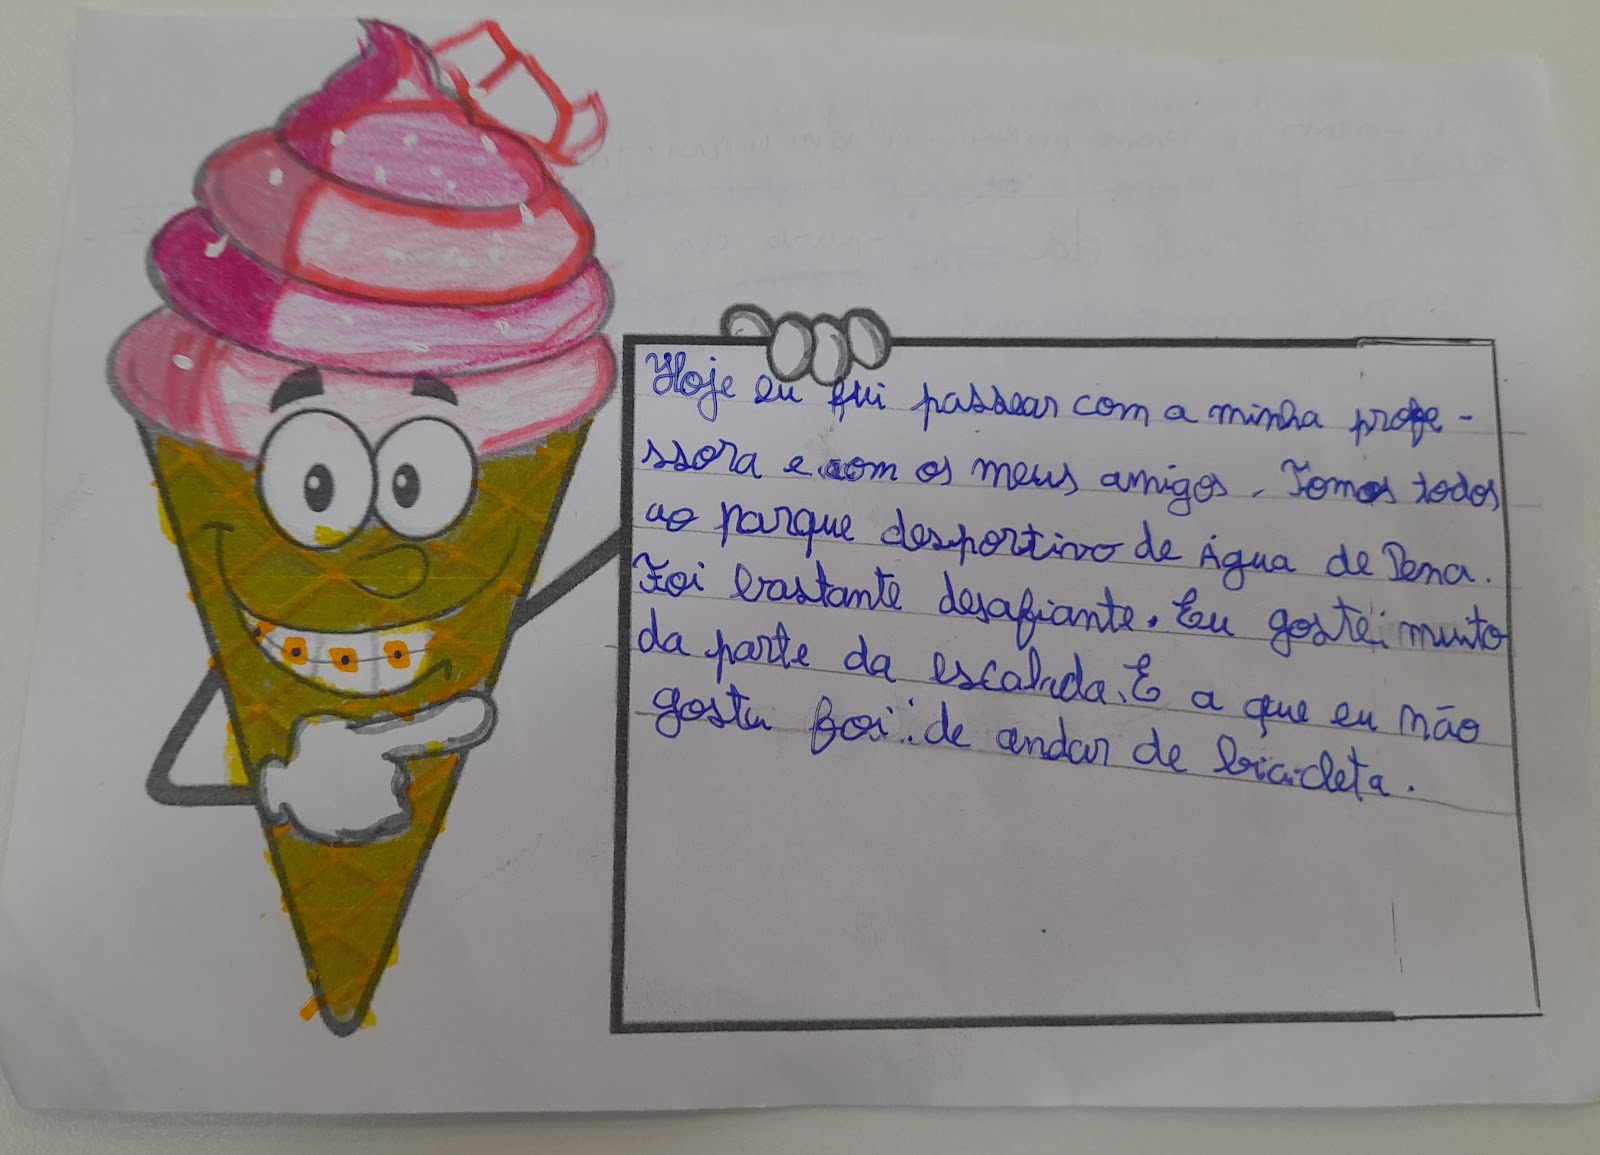 Hoje eu fui passear com a minha profe-
ssora e com os meus amigos. Fomos todos
ao parque desportivo de Água de Pena.
Foi bastante desafiante. Eu gostei muito
da parte da escalada. E a que eu não
gostei foi: de andar de bicicleta.